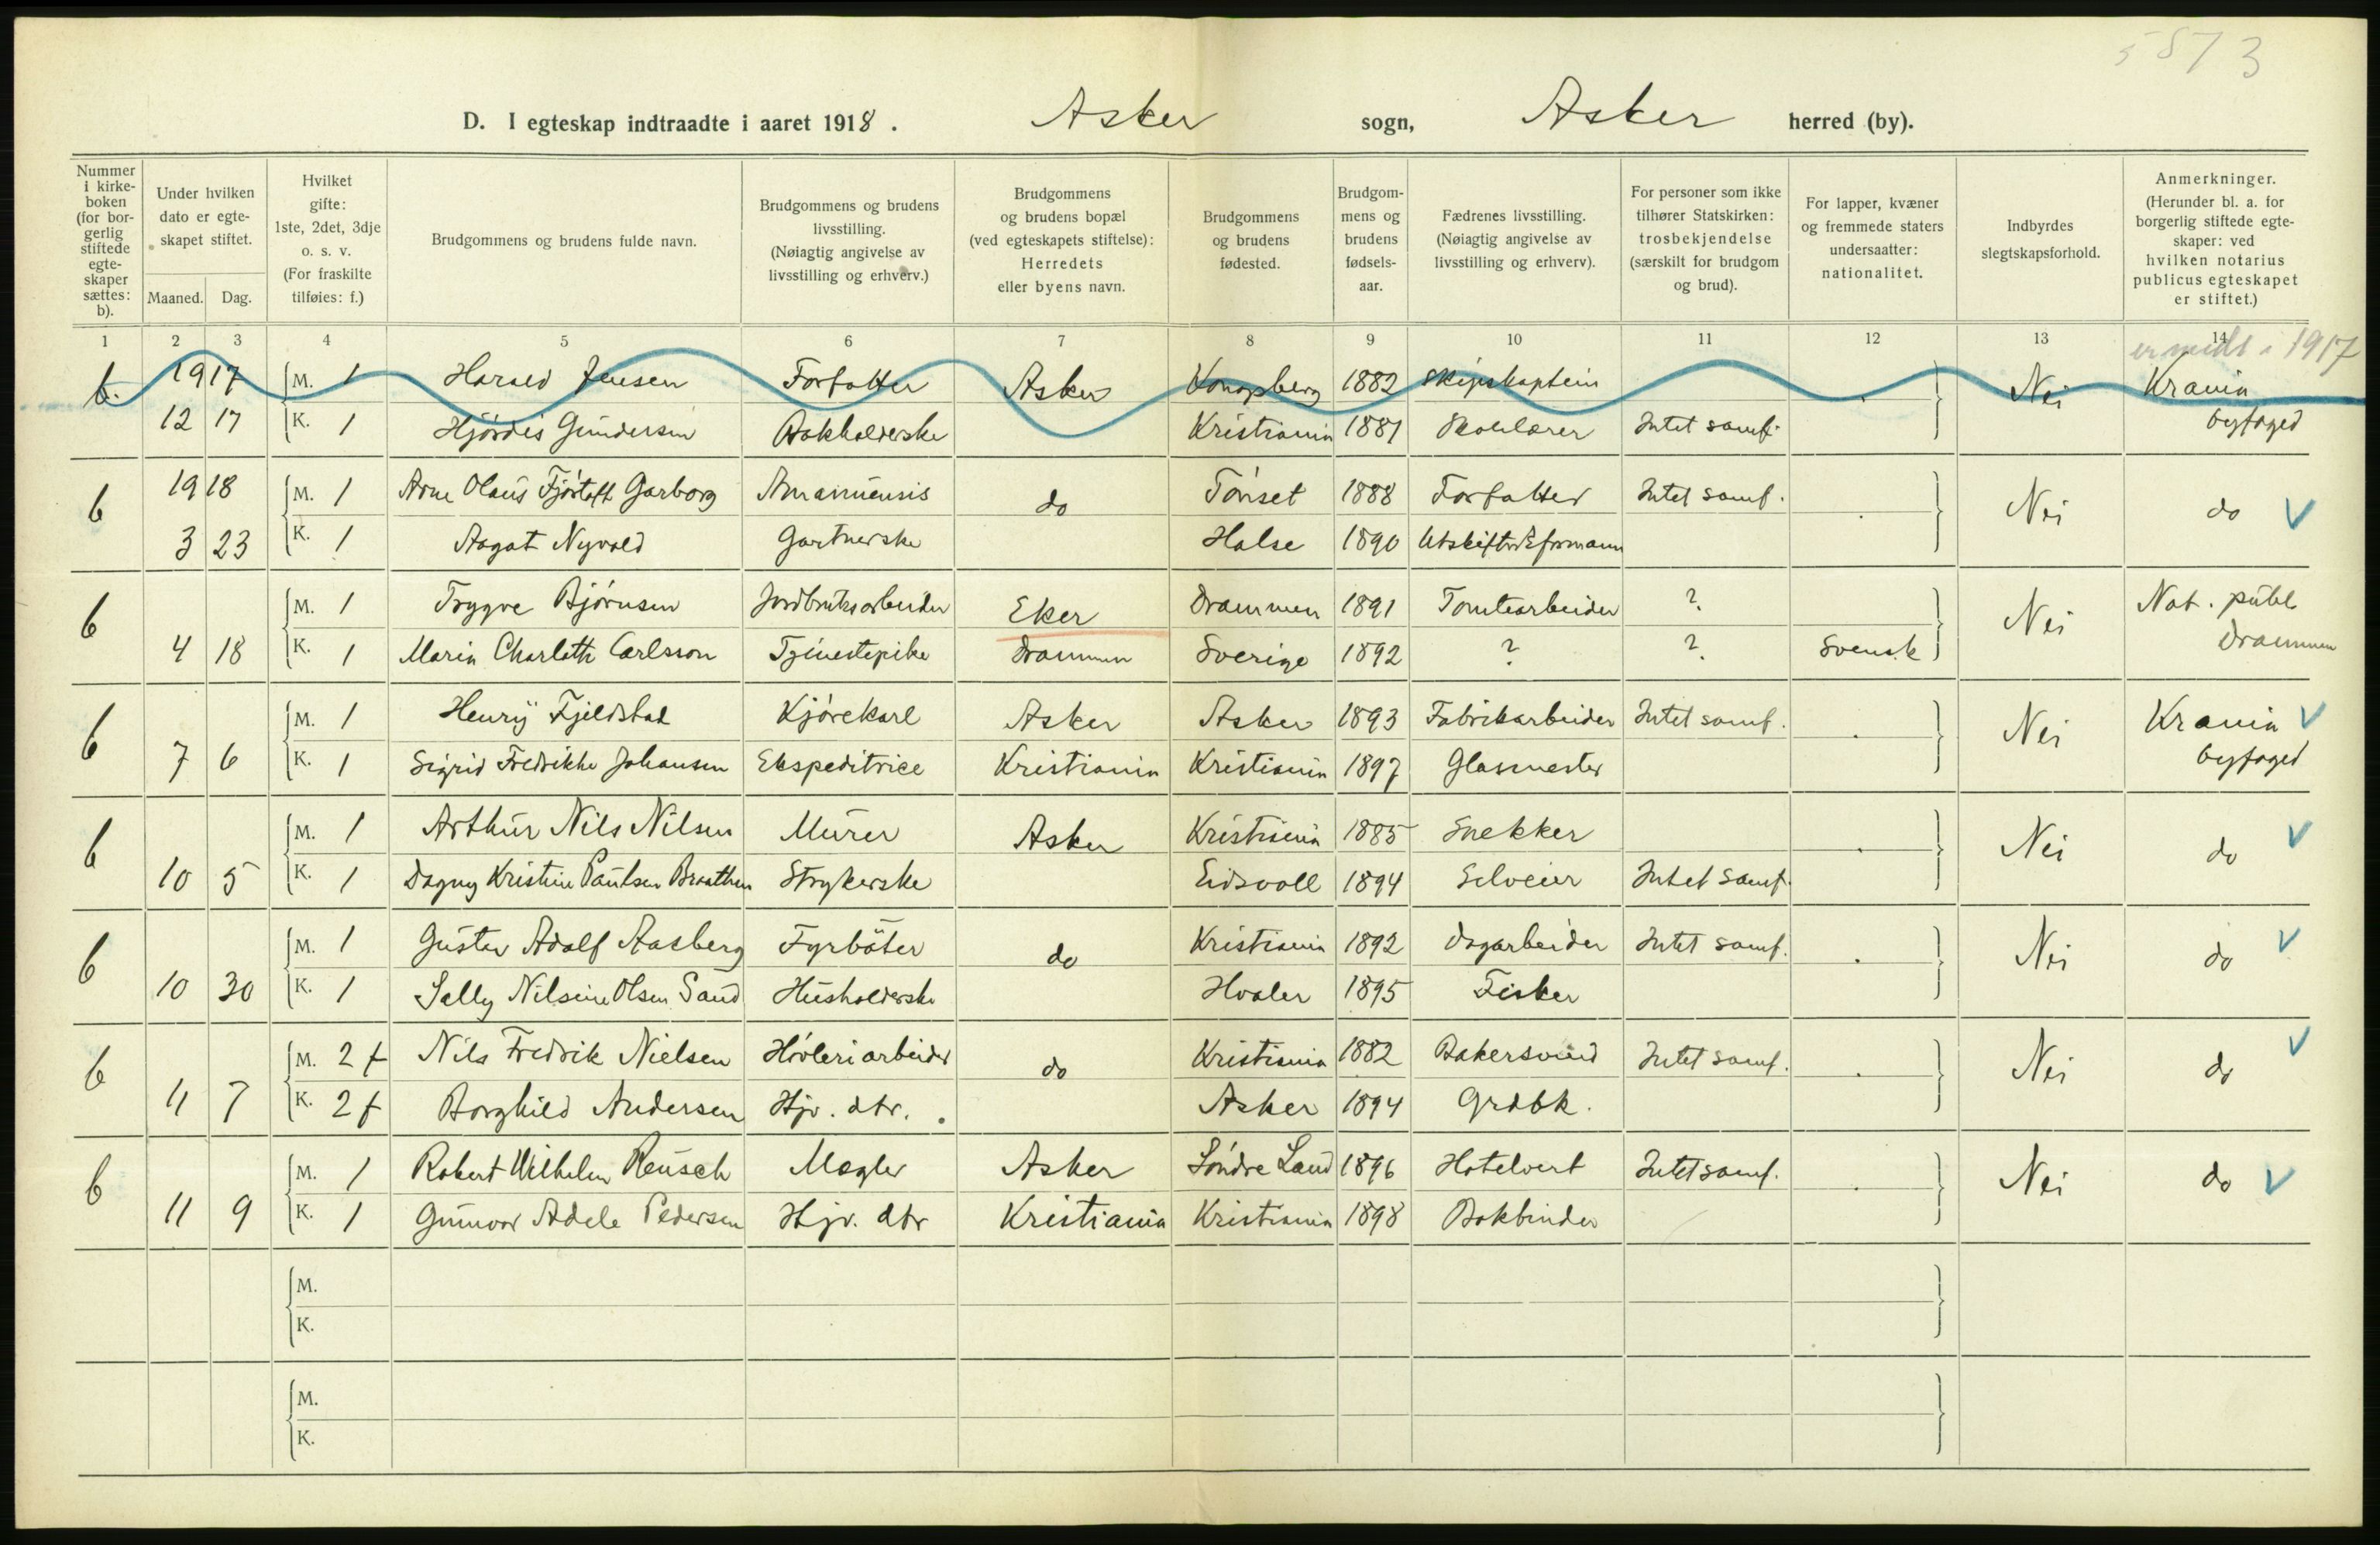 5873
D. I egteskap indtraadte i aaret 1918. Asker sogn, Asker herred (by).
Nummer i kirke-boken (for bor-gerlig stiftede egte-skaper sættes: b).
Under hvilken dato er egte-skapet stiftet.
Maaned. Dag.
Hvilket gifte: 1ste, 2det, 3dje o. s. v. (For fraskilte tilføies: f.)
Brudgommens og brudens fulde navn.
Brudgommens og brudens livsstilling. (Nøiagtig angivelse av livsstilling og erhverv.)
Brudgommens og brudens bopæl (ved egteskapets stiftelse): Herredets eller byens navn.
Brudgommens og brudens fødested.
Brudgom-mens og brudens fødsels-aar.
Fædrenes livsstilling. (Nøiagtig angivelse av livsstilling og erhverv).
For personer som ikke tilhører Statskirken: trosbekjendelse (særskilt for brudgom og brud).
For lapper, kvæner og fremmede staters undersaatter: nationalitet.
Indbyrdes slegtskapsforhold.
Anmerkninger. (Herunder bl. a. for borgerlig stiftede egte-skaper: ved hvilken notarius publicus egteskapet er stiftet.)
1 2 3 4 5 6 7 8 9 10 11 12 13 14
er medt i 1917
b. 1917 M. 1 Harald Jensen Forfatter Asker Kongsberg 1882 Skipskaptein Nei Krania
12 17 K. 1 Hjördis Gundersen Bokholderske Kristiania 1881 Skolelærer Intet samf. byfoged
b 1918 M. 1 Arne Olaus Fjörtoft Garborg Amanuensis do Tönset 1888 Forfatter Intet samf. Nei do
3 23 K. 1 Aagot Nyvold Gartnerske Halse 1890 Utskiftnsformann
b M. 1 Trygve Bjørnsen Jordbruksarbeider Eker Drammen 1891 Tomtearbeider ? Nei Not. publ
4 18 K. 1 Maria Charlotte Carlsson Tjenestepike Drammen Sverige 1892 ? ? Svensk Drammen
b M. 1 Henry Fjeldstad Kjörekarl Asker Asker 1893 Fabrikarbeider Intet samf. Nei Krania
7 6 K. 1 Sigrid Fredrikke Johansen Ekspeditrice Kristiania Kristiania 1897 Glasmester byfoged
b M. 1 Arthur Nils Nilsen Murer Asker Kristiania 1885 Snekker Nei do
10 5 K. 1 Dagny Kristine Paulsen Braathen Strykerske Eidsvoll 1894 Selveier Intet samf.
b M. 1 Gustav Adolf Aasberg Fyrböter do Kristiania 1892 Dagarbeider Intet samf. Nei do
10 30 K. 1 Sally Nilsine Olsen Sand Husholderske Hvaler 1895 Fisker
b M. 2 f Nils Fredrik Nielsen Hövleriarbeider do Kristiania 1882 Bakersvend Intet samf. Nei do
11 7 K. 2 f Borghild Andersen Hjv. dtr. Asker 1894 Grdbk.
b M. 1 Robert Wilhelm Reusch Megler Asker Söndre Land 1896 Hotelvert Intet samf. Nei do
11 9 K. 1 Gunvor Adele Pedersen Hjv. dtr Kristiania Kristiania 1898 Bokbinder
M.
K.
M.
K.